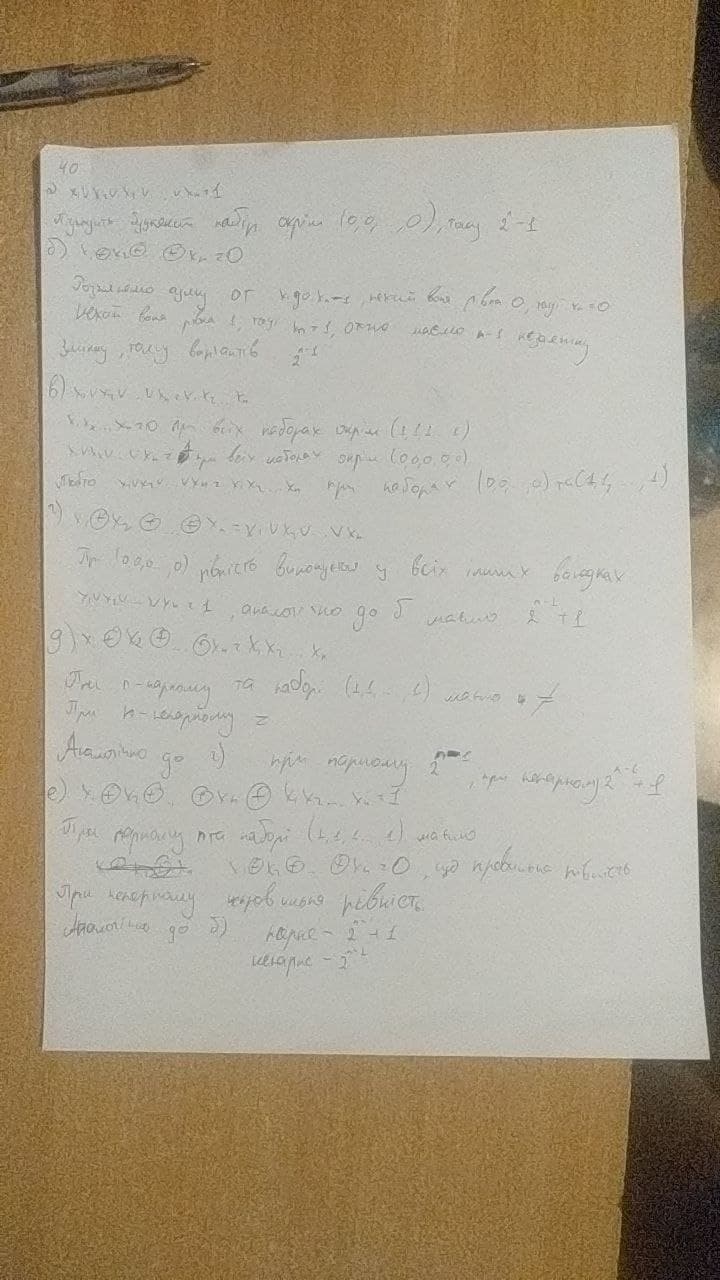 40
а) x₁∨x₂∨x₃∨...∨xₙ=1
набір окрім (0,0,...,0), тому 2ⁿ-1
б) x₁⊕x₂⊕...⊕xₙ=0
суму от x₁ до xₙ₋₁, нехай вона рівна 0, тоді xₙ=0
Нехай вона рівна 1, тоді xₙ=1, отже маємо n-1 незалежну
змінну, тому варіантів 2ⁿ⁻¹
в) x₁∨x₂∨...∨xₙ=x₁x₂...xₙ
x₁x₂...xₙ=0 при всіх наборах окрім (1,1,1...1)
x₁∨x₂∨...∨xₙ=1 при всіх наборах окрім (0,0,0,0,0)
x₁∨x₂∨...∨xₙ=x₁x₂...xₙ при наборах (0,0,...,0) та (1,1,...,1)
г) x₁⊕x₂⊕...⊕xₙ=x₁∨x₂∨...∨xₙ
При (0,0,0...,0) рівність виконується у всіх інших випадках
x₁∨x₂∨...∨xₙ=1, аналогічно до б маємо 2ⁿ⁻¹+1
д) x₁⊕x₂⊕...⊕xₙ=x₁x₂...xₙ
При n-парному та наборі (1,1,...,1) маємо ≠
При n-непарному =
Аналогічно до г) при парному 2ⁿ⁻¹, при непарному 2ⁿ⁻¹+1
е) x₁⊕x₂⊕...⊕xₙ⊕x₁x₂...xₙ=1
При парному n та наборі (1,1,1...,1) маємо
x₁⊕x₂⊕...⊕xₙ=0, що правильна рівність
При непарному неправильна рівність
Аналогічно до б) парне - 2ⁿ⁻¹+1
непарне - 2ⁿ⁻¹